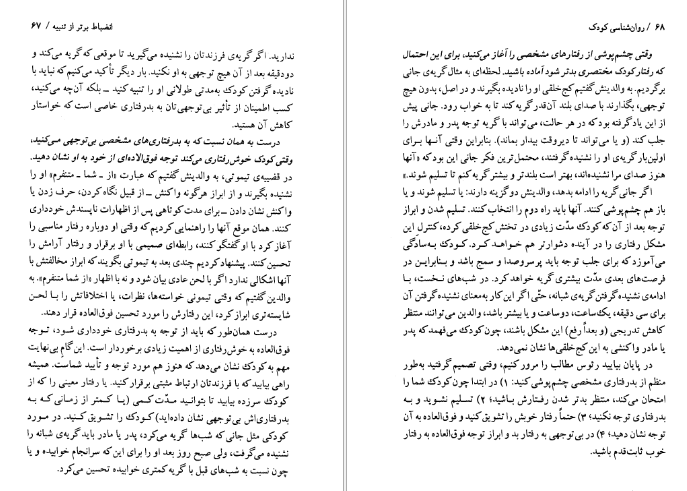 ۶۸ / روان‌شناسی کودک
وقتی چشم‌پوشی از رفتارهای مشخصی را آغاز می‌کنید، برای این احتمال
که رفتار کودک مختصری بدتر شود آماده باشید. لحظه‌ای به مثال گریه‌ی جانی
برگردیم. به والدینش گفتیم کج‌خلقی او را نادیده بگیرند و در اصل، بدون هیچ
توجهی، بگذارند با صدای بلند آن‌قدر گریه کند تا به خواب رود. جانی پیش
از این یاد گرفته بود که در هر حالت، می‌تواند با گریه توجه پدر و مادرش را
جلب کند (و یا می‌تواند تا دیروقت بیدار بماند). بنابراین وقتی آنها برای
اولین‌بار گریه‌ی او را نشنیده گرفتند، محتمل‌ترین فکر جانی این بود که «آنها
هنوز صدای مرا نشنیده‌اند، بهتر است بلندتر و بیشتر گریه کنم تا تسلیم شوند.»
اگر جانی گریه را ادامه بدهد، والدینش دو گزینه دارند: یا تسلیم شوند و یا
باز هم چشم‌پوشی کنند. آنها باید راه دوم را انتخاب کنند. تسلیم شدن و ابراز
توجه بعد از آن که کودک مدت زیادی در تختش کج‌خلقی کرده، کنترل این
مشکل رفتاری را در آینده دشوارتر هم خواهد کرد. کودک به‌سادگی
می‌آموزد که برای جلب توجه باید پرسروصدا و سمج باشد و بنابراین در
فرصت‌های بعدی مدّت بیشتری گریه خواهد کرد. در شب‌های نخست، با
ادامه‌ی نشنیده گرفتن گریه‌ی شبانه، حتّی اگر این کار به‌معنای نشنیده گرفتن آن
برای سی دقیقه، یک‌ساعت، دوساعت و یا بیشتر باشد، والدین می‌توانند منتظر
کاهش تدریجی (و بعداً رفع) این مشکل باشند، چون کودک می‌فهمد که پدر
یا مادر واکنشی به این کج‌خلقی‌ها نشان نمی‌دهد.
در پایان بیایید رئوس مطالب را مرور کنیم، وقتی تصمیم گرفتید به‌طور
منظم از بدرفتاری مشخصی چشم‌پوشی کنید: ۱) در ابتدا چون کودک شما را
امتحان می‌کند، منتظر بدتر شدن رفتارش باشید؛ ۲) تسلیم نشوید و به
بدرفتاری توجه نکنید؛ ۳) حتماً رفتار خوبش را تشویق کنید و فوق‌العاده به آن
توجه نشان دهید؛ ۴) در بی‌توجهی به رفتار بد و ابراز توجه فوق‌العاده به رفتار
خوب ثابت‌قدم باشید.
انضباط برتر از تنبیه / ۶۷
ندارید. اگر گریه‌ی فرزندتان را نشنیده می‌گیرید تا موقعی که گریه می‌کند و تا
دودقیقه بعد از آن هیچ توجهی به او نکنید. بار دیگر تأکید می‌کنیم که نباید با
نادیده گرفتن کودک به‌مدتی طولانی او را تنبیه کنید ــ بلکه آن‌چه می‌کنید،
کسب اطمینان از تأثیر بی‌توجهی‌تان به بدرفتاری خاصی است که خواستار
کاهش آن هستید.
درست به همان نسبت که به بدرفتاری‌های مشخصی بی‌توجهی می‌کنید،
وقتی کودک خوش‌رفتاری می‌کند توجه فوق‌الاده‌ای از خود به او نشان دهید.
در قضیه‌ی تیموتی، به والدینش گفتیم که عبارت «از ـ شما ـ متنفرم» او را
نشنیده بگیرند و از ابراز هرگونه واکنش ــ از قبیل نگاه کردن، حرف زدن یا
واکنش نشان دادن ــ برای مدت کوتاهی پس از اظهارات ناپسندش خودداری
کنند. همان موقع آنها را راهنمایی کردیم که وقتی او دوباره رفتار مناسبی را
آغاز کرد با او گفتگو کنند، رابطه‌ای صمیمی با او برقرار و رفتار آرامش را
تحسین کنند. پیشنهاد کردیم چندی بعد به تیموتی بگویند که ابراز مخالفتش با
آنها اشکالی ندارد اگر با لحن عادی بیان شود و نه با اظهار «از شما متنفرم». به
والدین گفتیم که وقتی تیموتی خواسته‌ها، نظرات، یا اختلافاتش را با لحن
شایسته‌تری ابراز کرد، این رفتارش را مورد تحسین فوق‌العاده قرار دهند.
درست همان‌طور که باید از توجه به بدرفتاری خودداری شود، توجه
فوق‌العاده به خوش‌رفتاری از اهمیت زیادی برخوردار است. این گام بی‌نهایت
مهم به کودک نشان می‌دهد که هنوز هم مورد توجه و تأیید شماست. همیشه
راهی بیابید که با فرزندتان ارتباط مثبتی برقرار کنید. یا رفتار معینی را که از
کودک سرزده بیابید تا بتوانید مدّت کمی (یا کمتر از زمانی که به
بدرفتاری‌اش بی‌توجهی نشان داده‌اید) کودک را تشویق کنید. در مورد
کودکی مثل جانی که شب‌ها گریه می‌کرد، پدر یا مادر باید گریه‌ی شبانه را
نشنیده می‌گرفت، ولی صبح روز بعد او را برای این‌که سرانجام خوابیده و یا
چون نسبت به شب‌های قبل با گریه کمتری خوابیده تحسین می‌کرد.